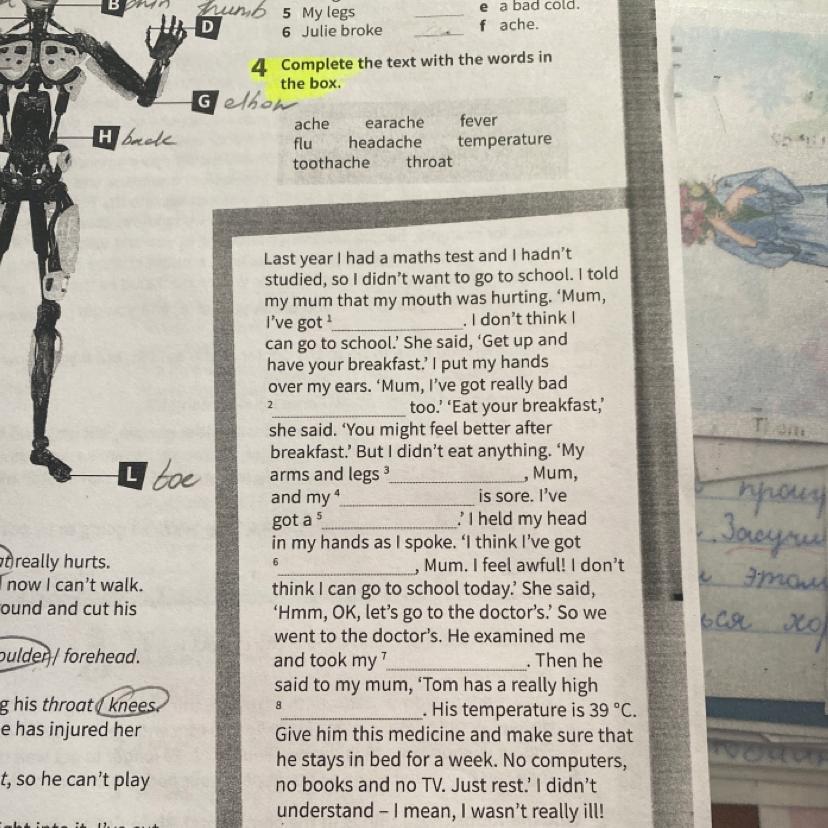 B
thumb
D
G elbow
H back
L toe
5 My legs
6 Julie broke
e a bad cold.
f ache.
4 Complete the text with the words in
the box.
ache earache fever
flu headache temperature
toothache throat
Last year I had a maths test and I hadn't
studied, so I didn't want to go to school. I told
my mum that my mouth was hurting. 'Mum,
I've got ¹____________. I don't think I
can go to school.' She said, 'Get up and
have your breakfast.' I put my hands
over my ears. 'Mum, I've got really bad
²____________ too.' 'Eat your breakfast,'
she said. 'You might feel better after
breakfast.' But I didn't eat anything. 'My
arms and legs ³____________, Mum,
and my ⁴____________ is sore. I've
got a ⁵____________.' I held my head
in my hands as I spoke. 'I think I've got
⁶____________, Mum. I feel awful! I don't
think I can go to school today.' She said,
'Hmm, OK, let's go to the doctor's.' So we
went to the doctor's. He examined me
and took my ⁷____________. Then he
said to my mum, 'Tom has a really high
⁸____________. His temperature is 39 °C.
Give him this medicine and make sure that
he stays in bed for a week. No computers,
no books and no TV. Just rest.' I didn't
understand – I mean, I wasn't really ill!
really hurts.
now I can't walk.
ound and cut his
oulder / forehead.
g his throat / knees.
e has injured her
t, so he can't play